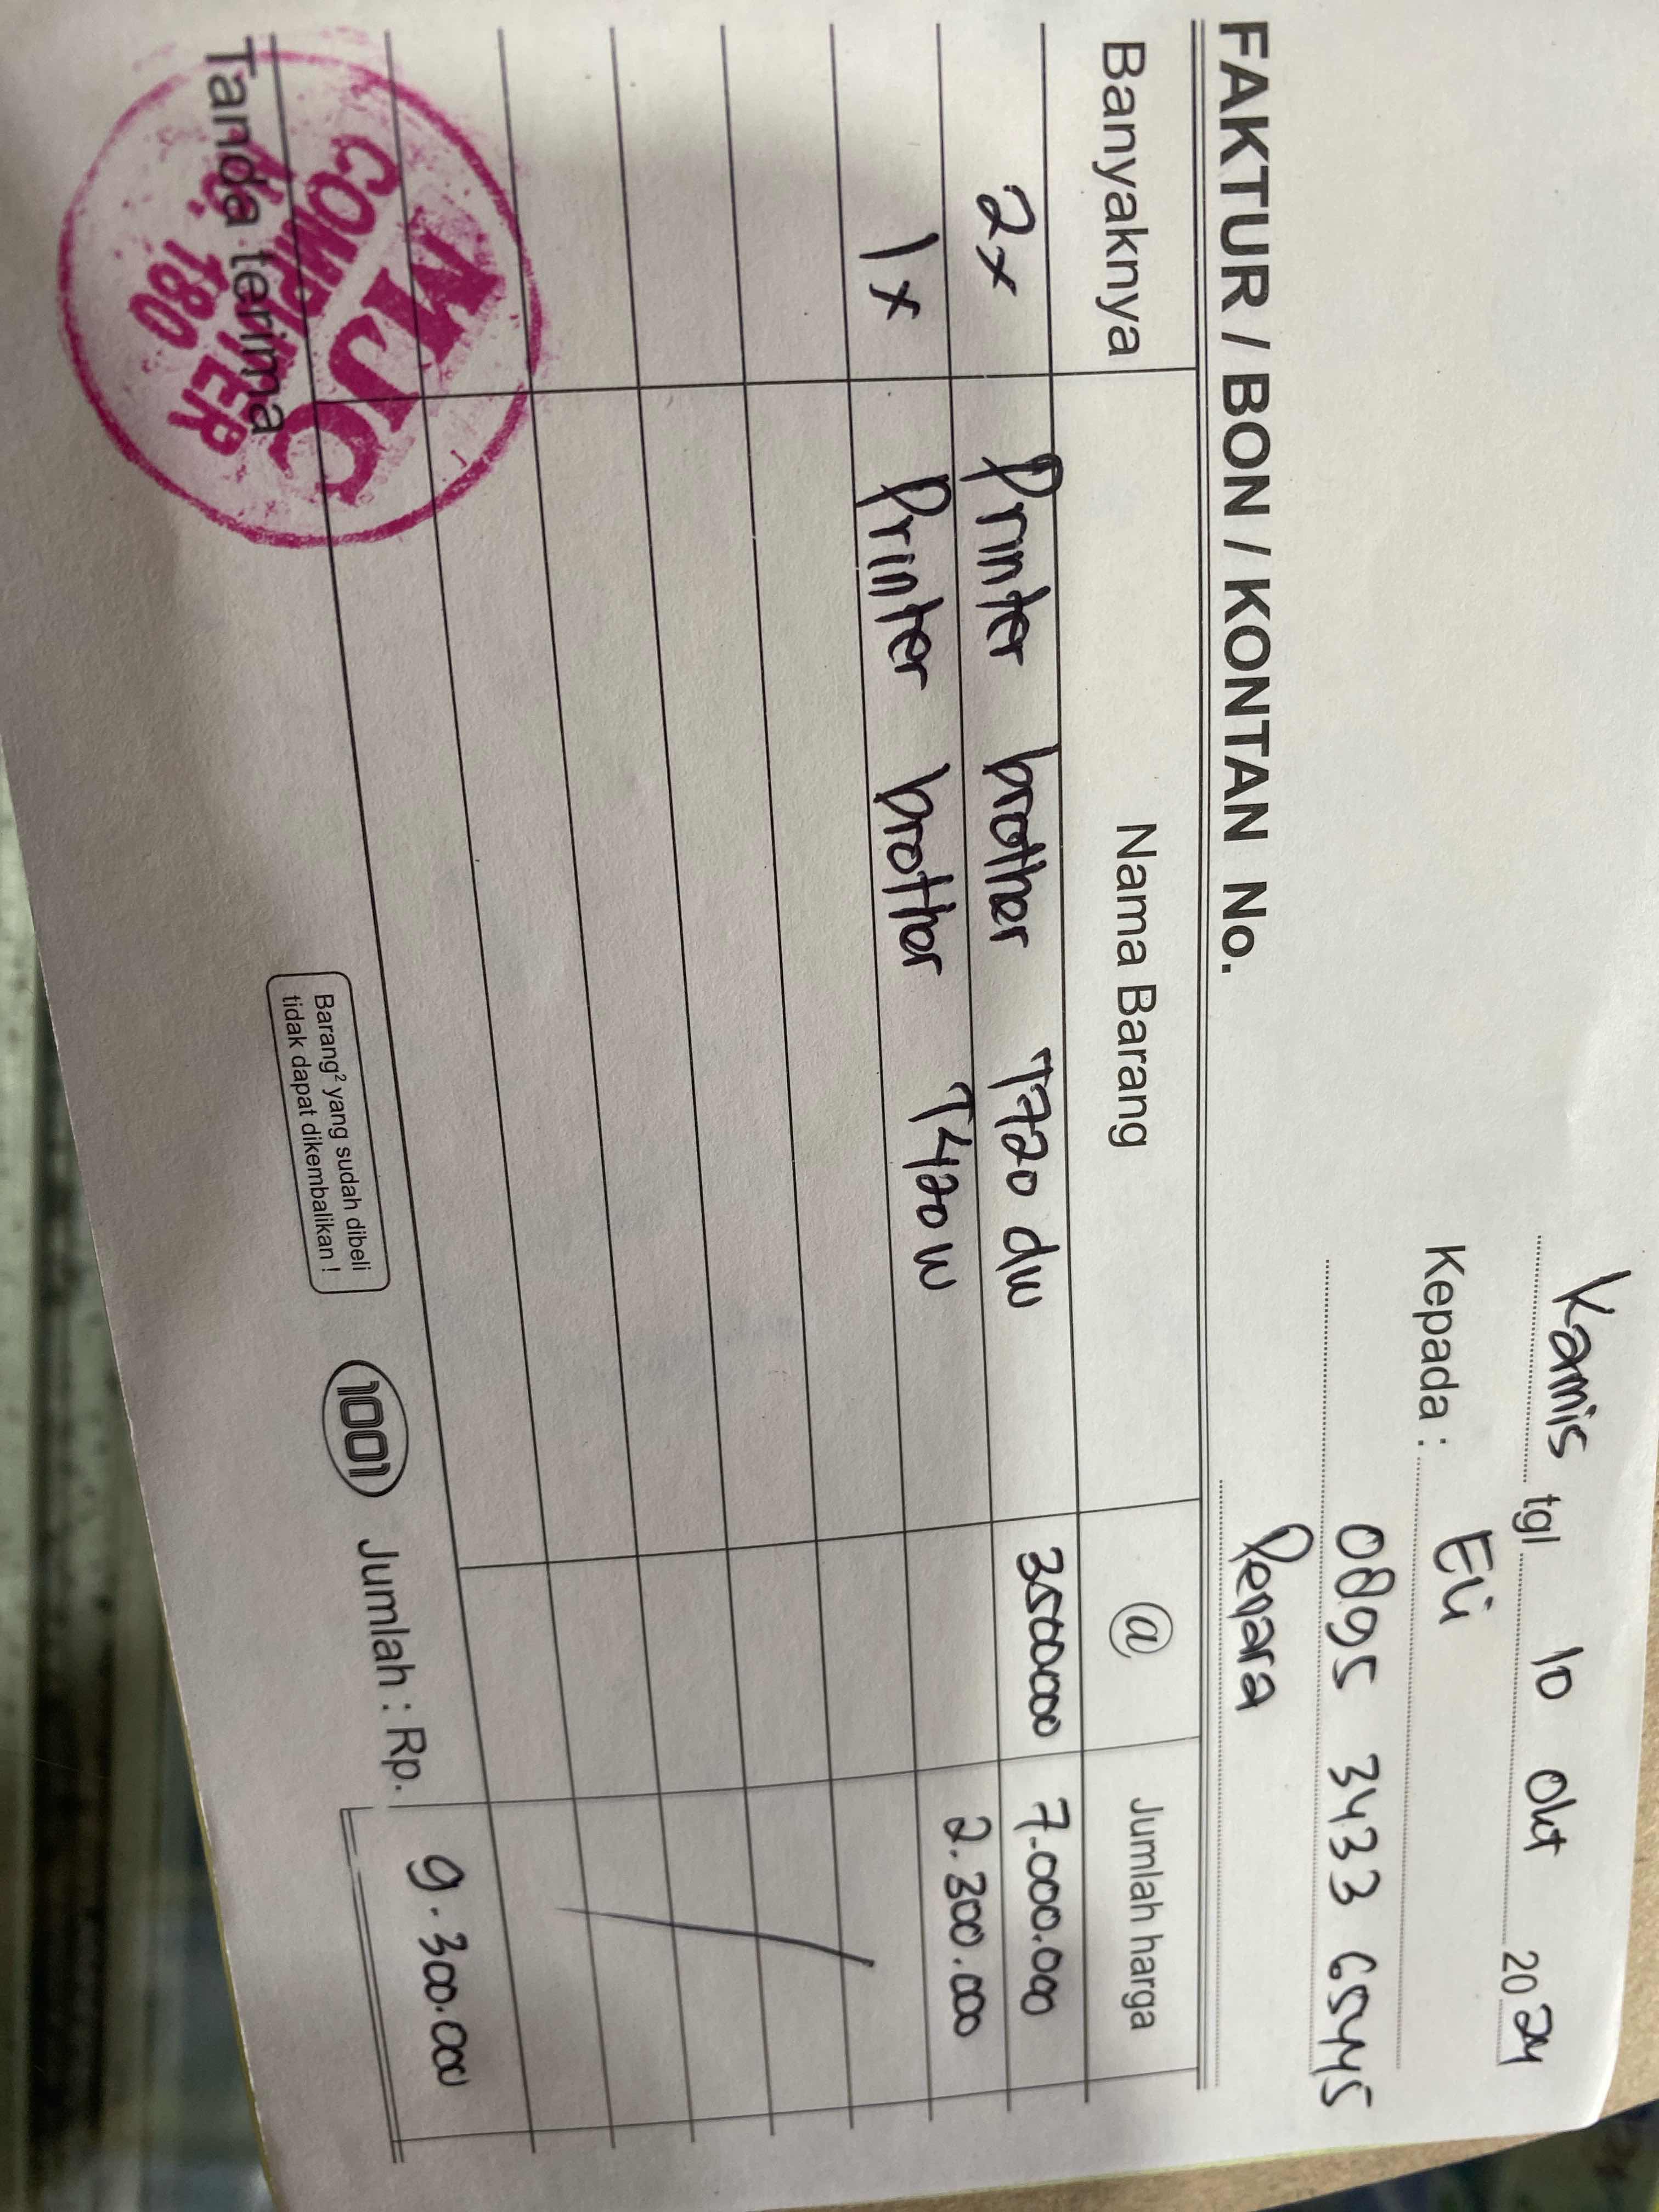 Kamis tgl 10 Okt 2024
Kepada : Eli
0895 3433 65445
Perara
FAKTUR / BON / KONTAN No.
Banyaknya Nama Barang @ Jumlah harga
2x Printer brother T720 dw 3500000 7.000.000
1x Printer brother T420 w 2.300.000
Jumlah : Rp. 9.300.000
Tanda terima
MJC
COMPUTER
180
Barang² yang sudah dibeli
tidak dapat dikembalikan !
1001